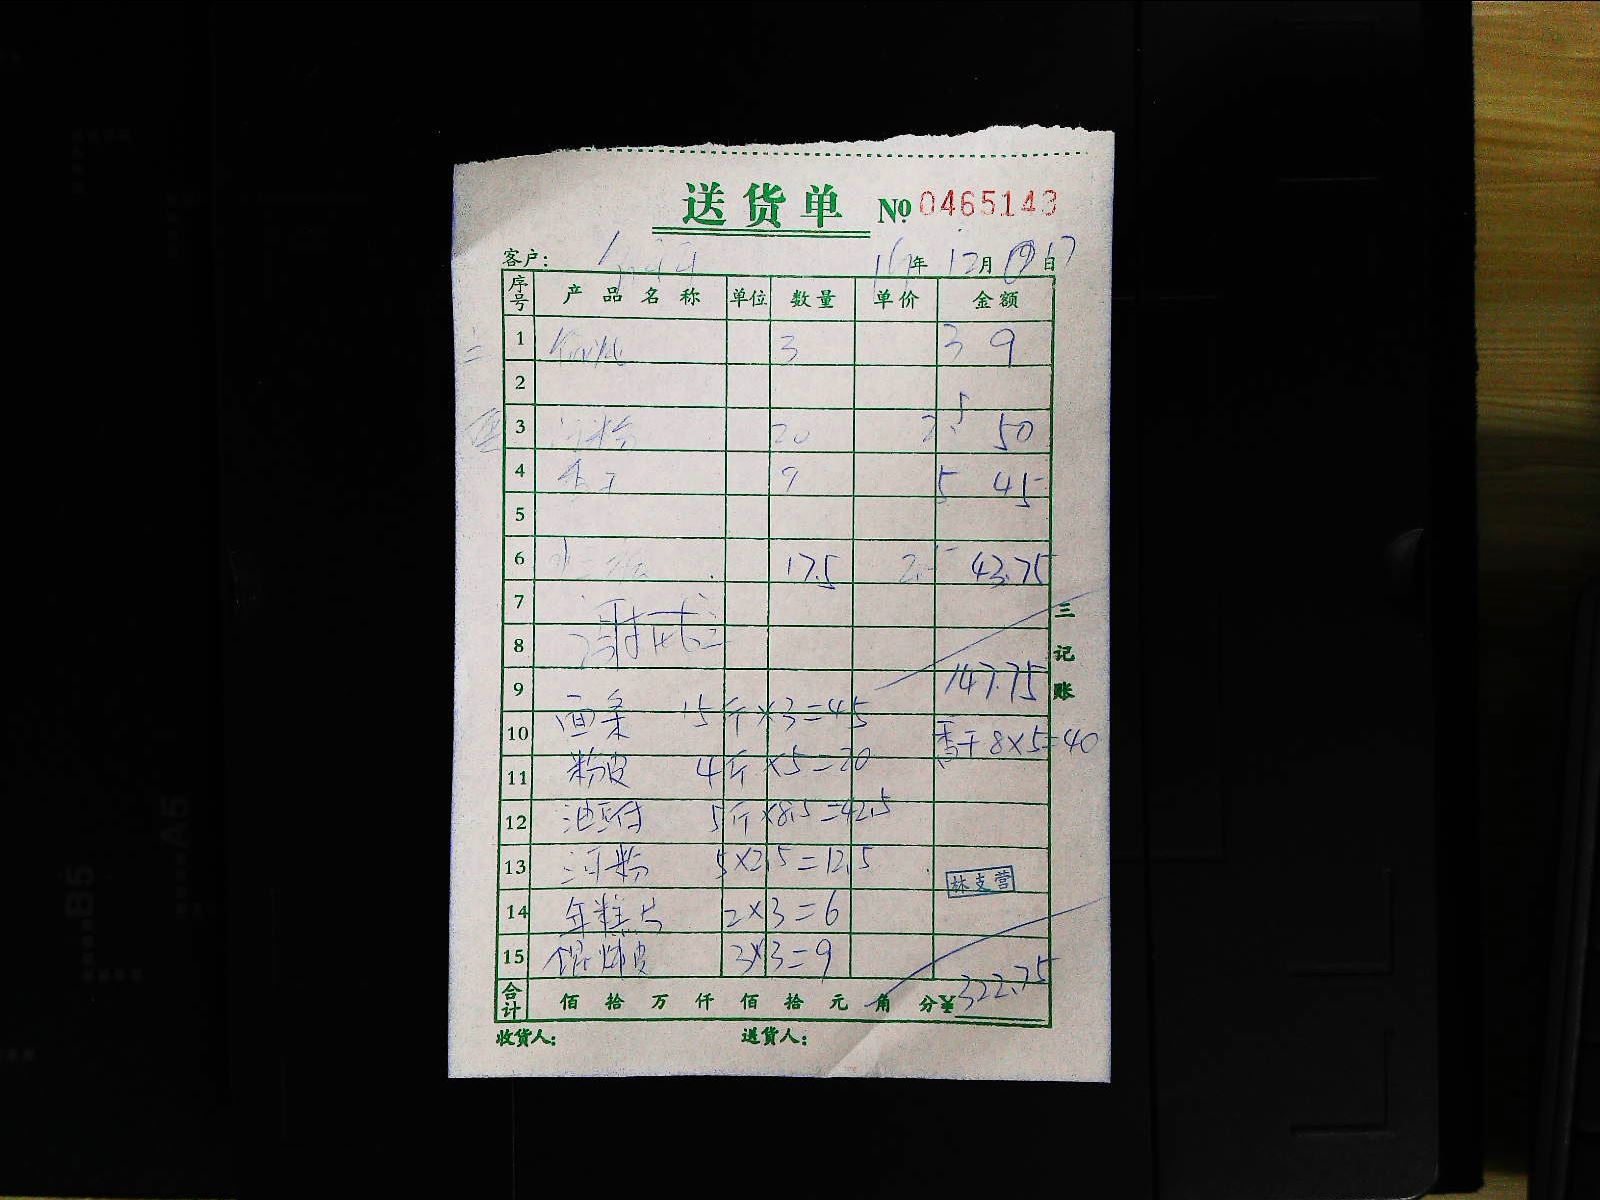 送货单 № 0465143
客户： 16年 12月 日 17
序号 产品名称 单位 数量 单价 金额
1 3 3 9
2
3 河粉 20 2.5 50
4 香干 9 5 45
5
6 17.5 2.5 43.75
7
8
9 147.75
面条 15斤×3=45
10 香干8×5=40
11 粉皮 4斤×5=20
12 油豆付 5斤×8.5=42.5
13 河粉 5×2.5=12.5
林支营
14 年糕片 2×3=6
15 馄炖皮 3×3=9
合计 佰拾万仟佰拾元角分¥322.75
收货人： 送货人：
三记账